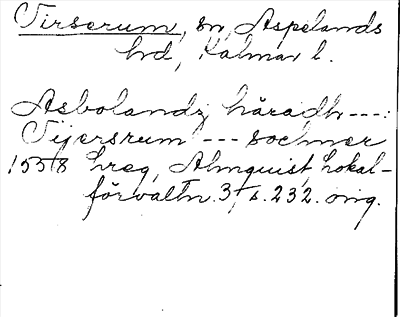 Virserum, sn, Aspelands
hd, Kalmar l.
Asbolandz häradh ---:
Tijersrum --- sochner
1558 hreg, Almquist, Lokal-
förvaltn. 3, s. 232. orig.